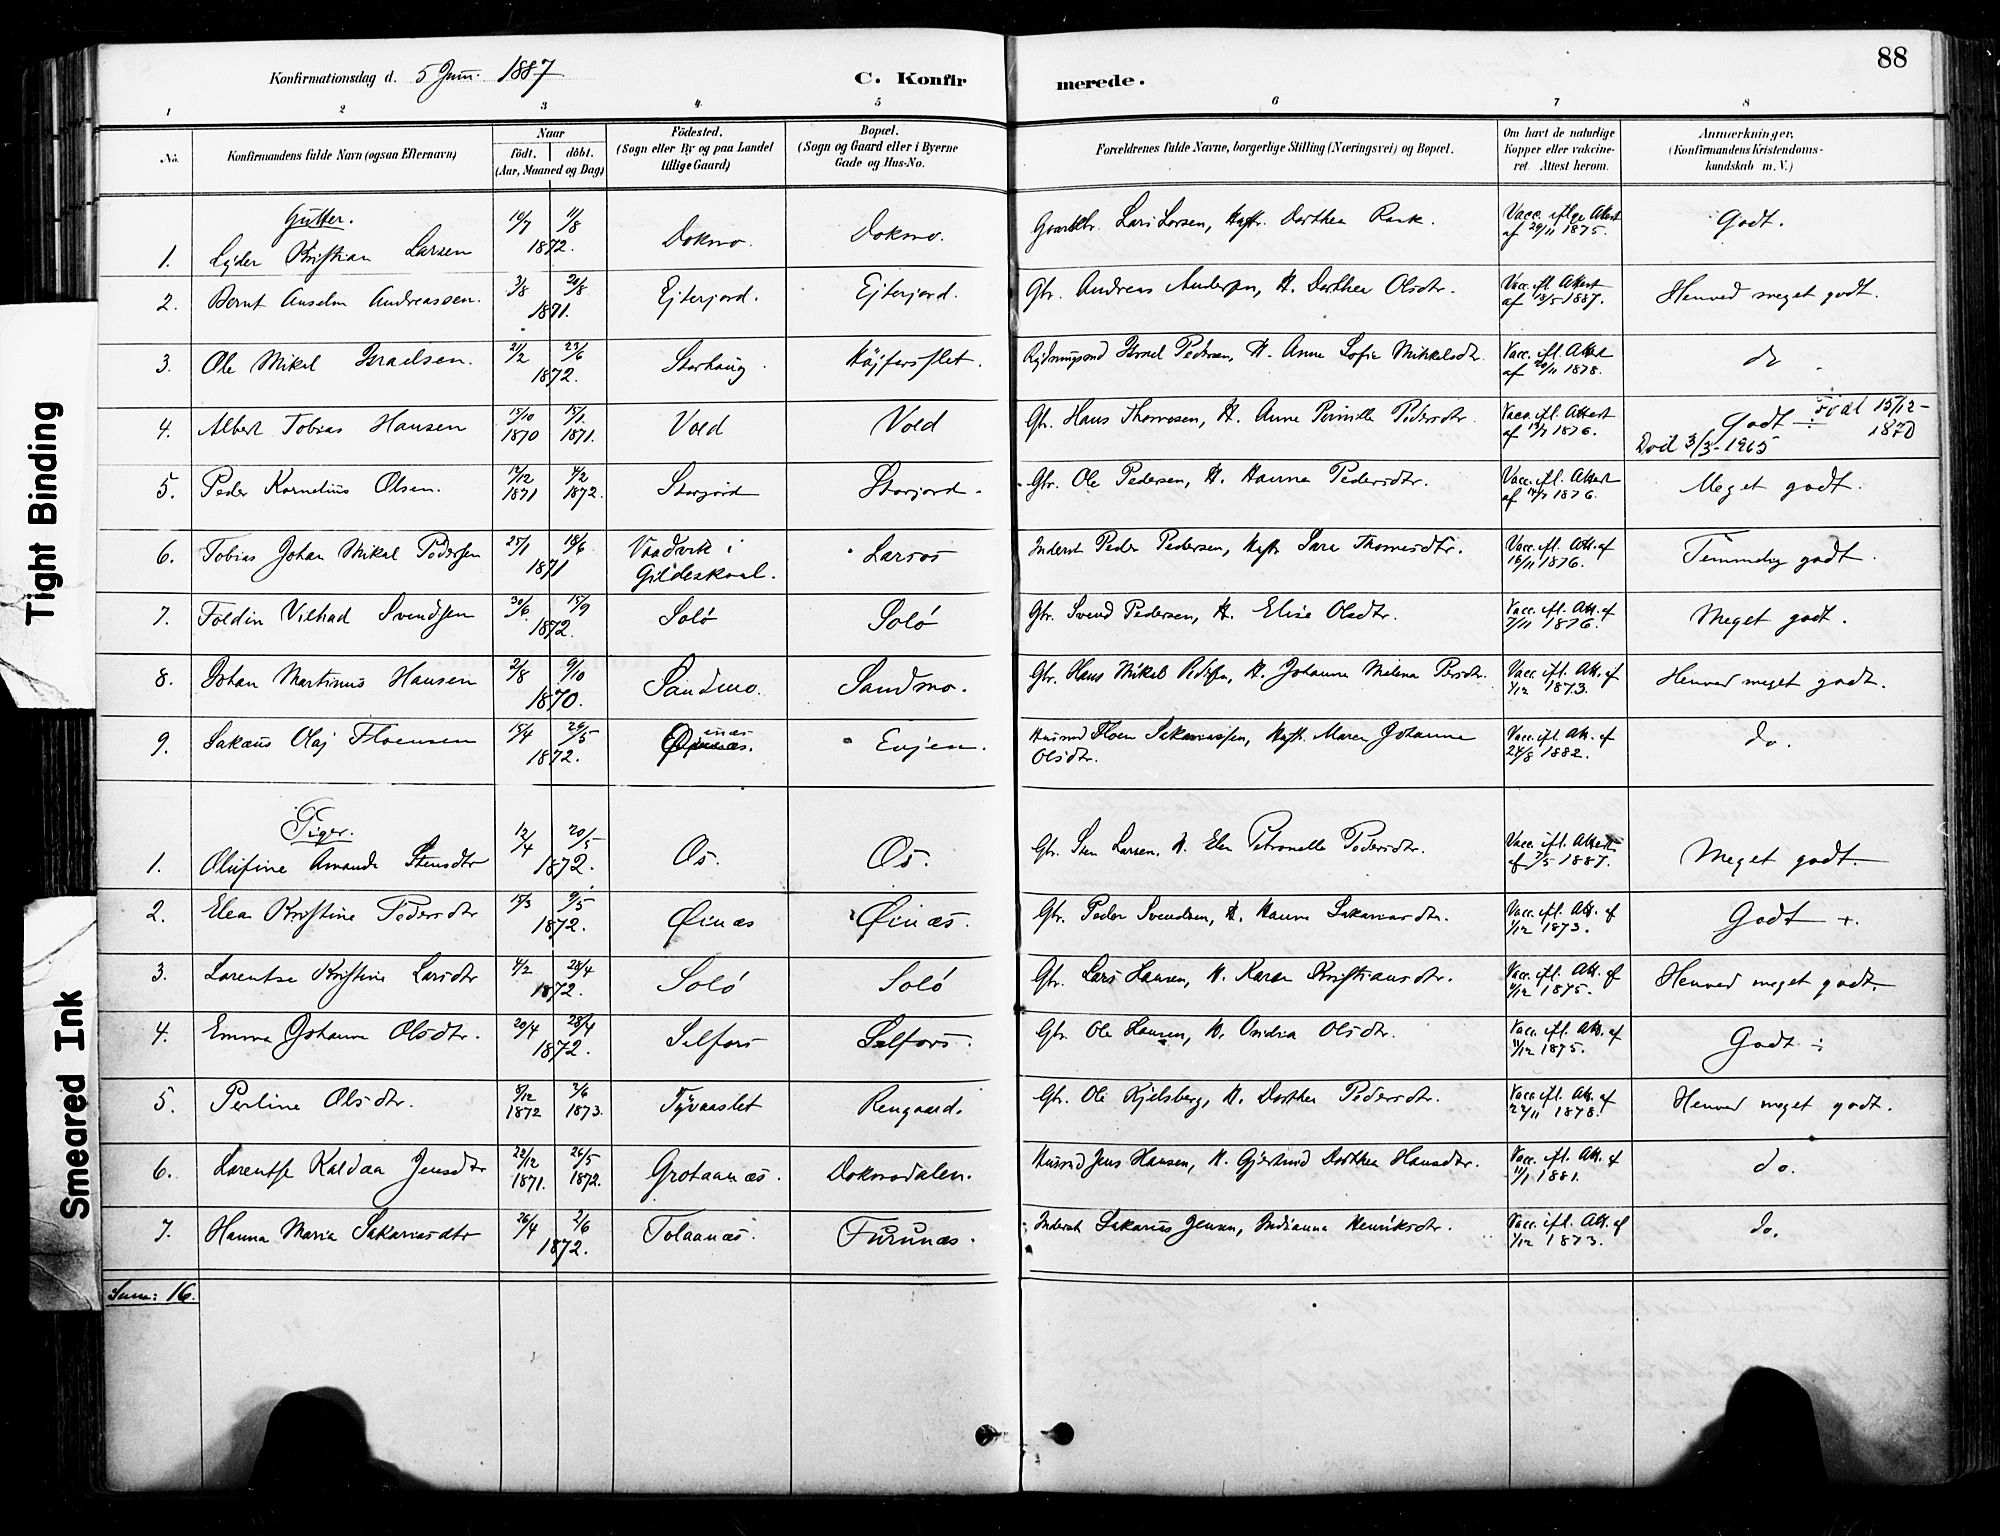 Tight Binding
Smeared Ink
Konfirmationsdag d. 5 Juni. 1887
C. Konfirmerede.
88
1 2 3 4 5 6 7 8
No.
Konfirmandens fulde Navn (ogsaa Efternavn)
Naar
födt. döbt.
(Aar, Maaned og Dag)
Födested.
(Sogn eller By og paa Landet
tillige Gaard)
Bopæl.
(Sogn og Gaard eller i Byerne
Gade og Hus-No.
Forældrenes fulde Navne, borgerlige Stilling (Næringsvei) og Bopæl.
Om havt de naturlige
Kopper eller vakcine-
ret. Attest herom.
Anmærkninger.
(Konfirmandens Kristendoms-
kundskab m. V.)
Gutter.
1. Lyder Kristian Larsen 19/7 11/8 1872. Dokmo. Dokmo. Lars Larsen, Dorthea Rask. Vacc. iflge Attest af 29/11 1875. Godt.
2. Bernt Anselm Andreassen. 3/8 20/8 1871. Ejterjord. Ejterjord. Gbr. Andreas Andersen, H. Dorthea Olsdtr. Vacc. ifl. Attest af 13/5 1887. Henved meget godt.
3. Ole Mikal Israelsen. 21/2 23/6 1872. Storhaug. Højforsflet. Israel Pedersen, H. Anne Sofie Mikkelsdtr. Vacc. ifl. Attest af 20/11 1878. do
4. Albert Tobias Hansen 15/10 1870 15/1 1871. Vold Vold Gbr. Hans Thomesen, H. Anne Pernille Pedersdtr. Vacc. ifl. Attest af 13/7 1876. Godt ÷ Födt 15/12-1870
Död 3/3-1965
5. Peder Kornelius Olsen. 12/12 1871 4/2 1872. Storjord Storjord. Gbr. Ole Pedersen, H. Hanna Pedersdtr. Vacc. ifl. Attest af 14/7 1876. Meget godt.
6. Tobias Johan Mikal Pedersen 25/1 18/6 1871 Vaadvik i Gildeskaal. Larsos Inderst Peder Pedersen, Hustr. Sara Thomesdtr. Vacc. ifl. Att. af 16/11 1876. Temmelig godt.
7. Foldin Vilhad Svendsen 30/6. 15/9 1872. Solö Solö Gbr. Svend Pedersen, H. Elise Olsdtr. Vacc. ifl. Att. af 7/11 1876. Meget godt.
8. Johan Martinus Hansen 2/8 9/10 1870. Sandmo. Sandmo. Gbr. Hans Mikal Pedersen, H. Johanna Malena Persdtr. Vacc. ifl. Att. af 1/12 1873. Henved meget godt.
9. Sakæus Olaj Floensen 15/4 26/5 1872. Øinæs. Evjen. Husmd Floen Sakariassen, Hustr. Maren Johanna Olsdtr. Vacc. ifl. Att. af 24/8 1882. do.
Piger.
1. Olufine Amanda Stensdtr 12/4 20/5 1872. Os. Os. Gbr. Sten Larsen, H. Elen Petronelle Pedersdtr. Vacc. ifl. Attest af 7/5 1887. Meget godt.
2. Elea Kristine Pedersdtr 15/3 9/5 1872. Øinæs Øinæs. Gbr. Peder Svendsen, H. Hanna Sakariasdtr. Vacc. ifl. Att. af 1/12 1873. Godt +.
3. Larentse Kristine Larsdtr 4/2 28/4 1872. Solö Solö Gbr. Lars Hansen, H. Karen Kristiansdtr. Vacc. ifl. Att. af 1875. Henved meget godt.
4. Emma Johanna Olsdtr. 20/4 28/4 1872. Selfors Selfors. Gbr. Ole Hansen, H. Olsdtr. Vacc. ifl. Att. af 11/12 1875. Godt ÷
5. Perline Olsdtr. 8/12 1872 2/6 1873. Tyvaaslet Rengaard. Gbr. Ole Kjelsberg, H. Dorthea Pedersdtr. Vacc. ifl. Att. af 27/11 1878. Henved meget godt.
6. Larentse Kaldaa Jensdtr 22/12 1871. 26/5 1872. Grotaanæs. Dokmodalen. Husmd Jens Hansen, H. Gjertrud Dorthea Hansdtr. Vacc. ifl. Att. af 11/1 1881. do.
7. Hanna Maria Sakariasdtr 26/4 2/6 1872. Tolaanæs. Furunæs. Inderst Sakarias Jensen, Indianna Henriksdtr. Vacc. ifl. Att. af 1/12 1873. do.
Sum: 16.